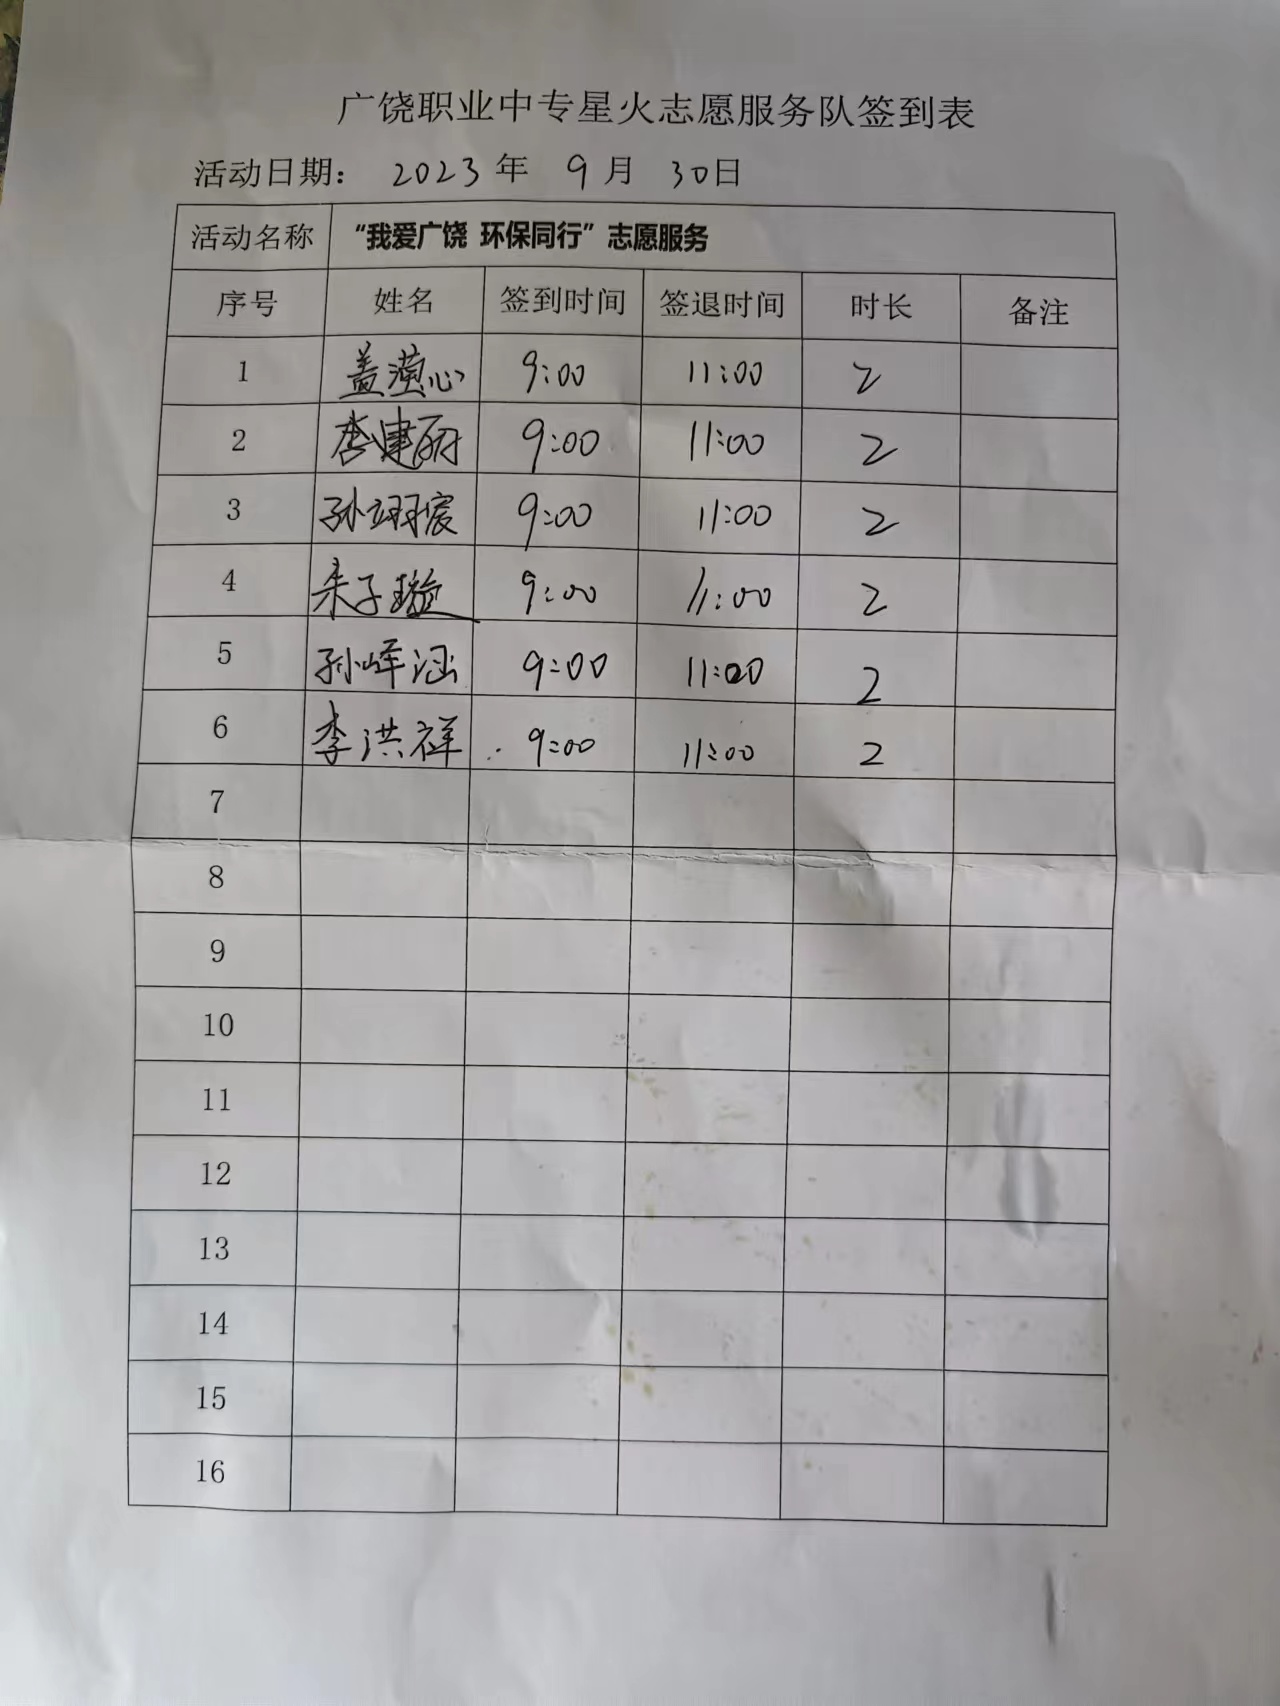 广饶职业中专星火志愿服务队签到表
活动日期： 2023 年 9 月 30日
活动名称 “我爱广饶 环保同行”志愿服务
序号 姓名 签到时间 签退时间 时长 备注
1 盖 心 9:00 11:00 2
2 李建丽 9:00 11:00 2
3 孙翊宸 9:00 11:00 2
4 朱子璇 9:00 11:00 2
5 孙峰涵 9:00 11:00 2
6 李洪祥 9:00 11:00 2
7
8
9
10
11
12
13
14
15
16